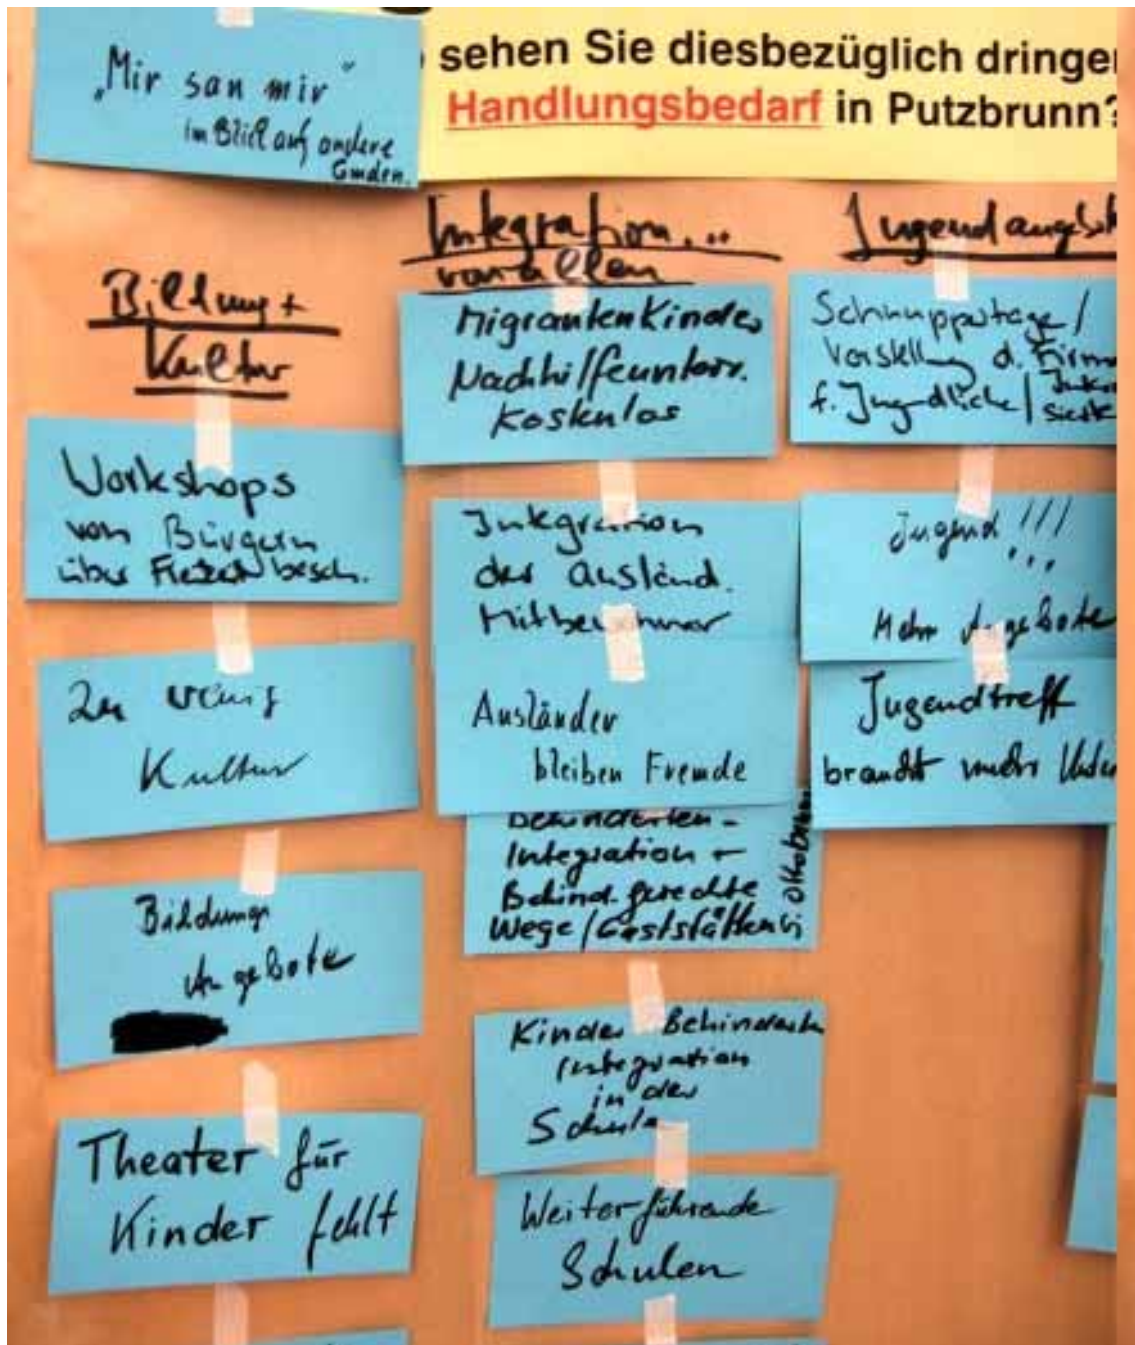 „Mir san mir"
im Blick auf andere
Gmden.
sehen Sie diesbezüglich dringe
Handlungsbedarf in Putzbrunn?
Bildung +
Kultur
Workshops
von Bürgern
über besch.
Zu wenig
Kultur
Bildungs
Angebote
Theater für
Kinder fehlt
Integration...
von allen
Migrantenkinder
Nachhilfeunterr.
kostenlos
Integration
der ausländ.
Mitbewohner
Ausländer
bleiben Fremde
Behinderten-
Integration +
Behind. gerechte
Wege/Gaststätten
Kinder Behinderten
Integration
in der
Schule
Weiterführende
Schulen
Jugendangebote
Schnuppertage/
Vorstellung d. Firm
f. Jugendliche/
Jugend!!!
Mehr Angebote
Jugendtreff
braucht mehr